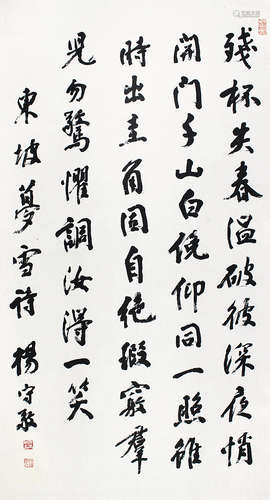 殘杯失春溫破被深夜悄
開門千山白俛仰同一照雖
時出圭角固自絶瑕竅羣
兒勿驚懼調汝得一笑
東坡夢雪詩 楊守敬